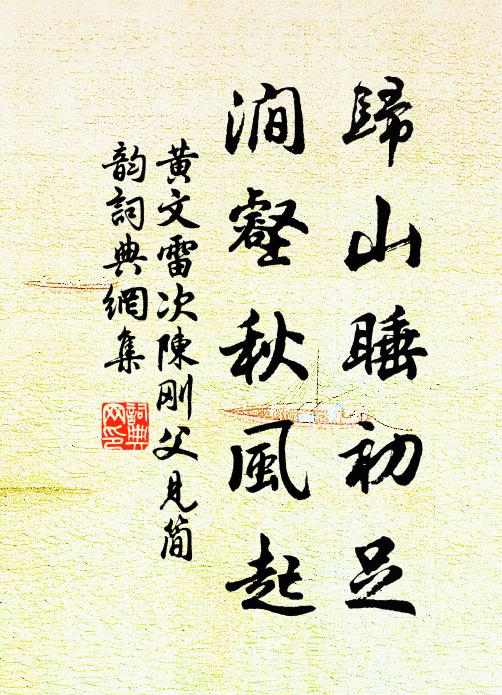 歸山睡初足
澗壑秋風起
黃文雷次陳剛父見簡
韵詞典網集
詞典網印